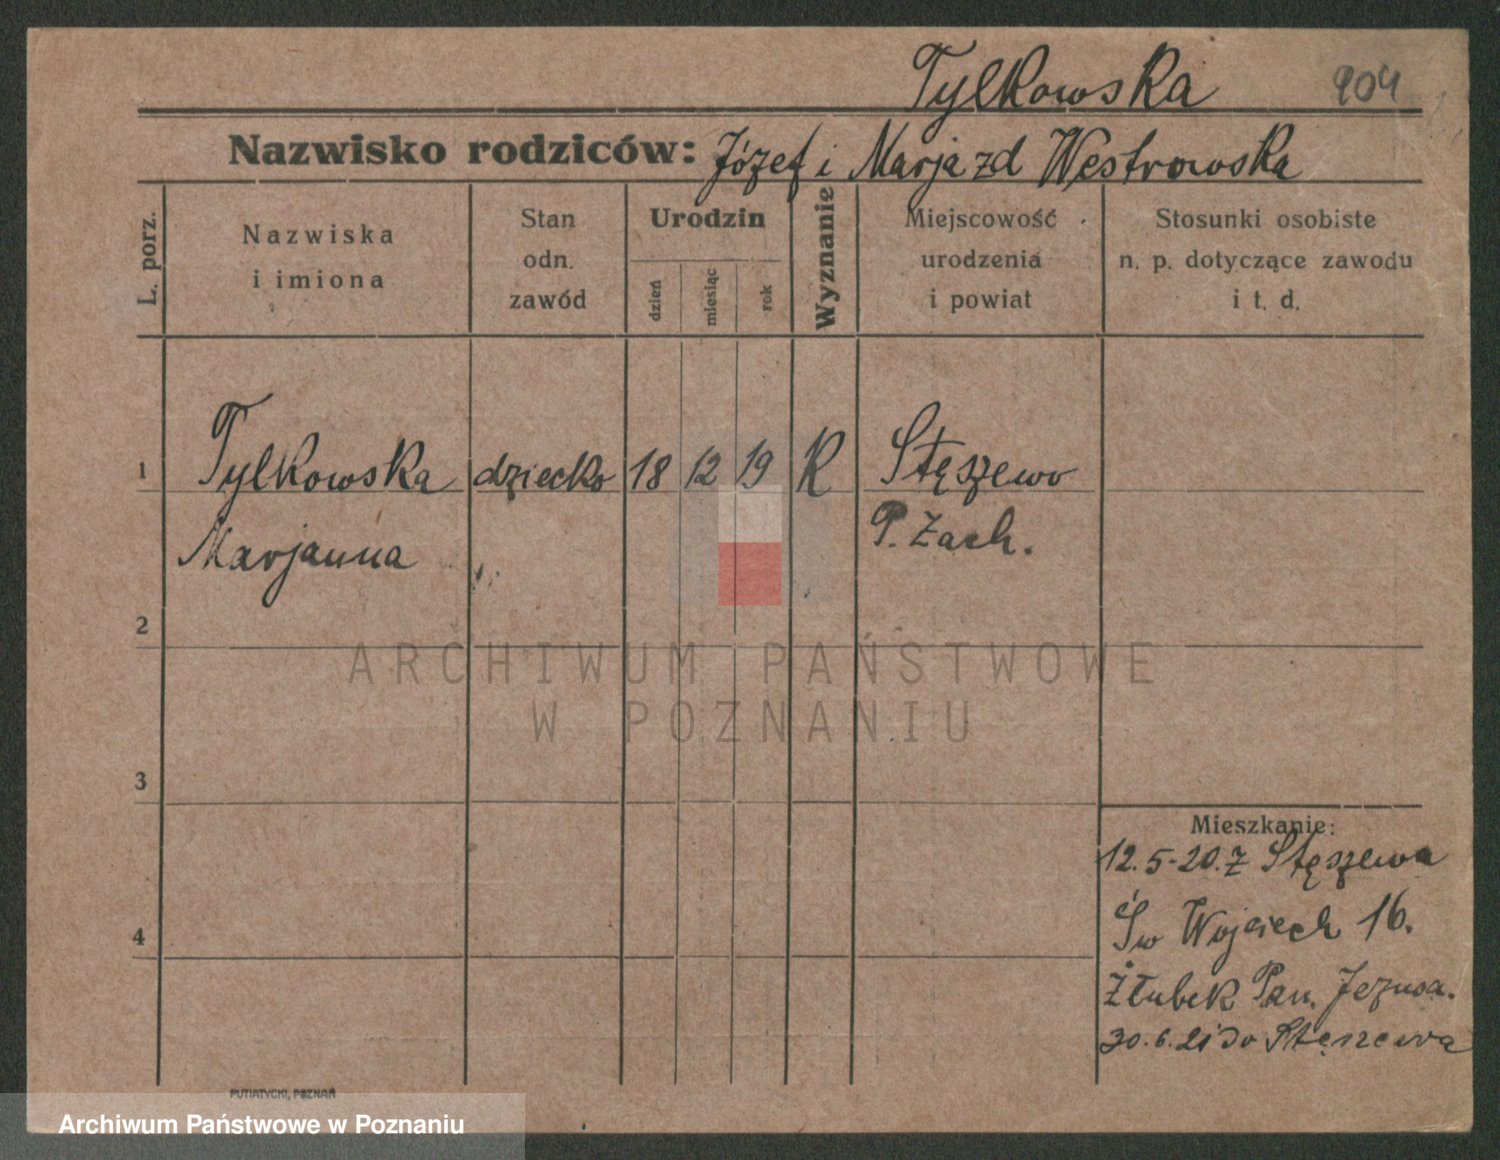 Tylkowska 904
Nazwisko rodziców: Józef i Marja zd Westrowska
L. porz.
Nazwiska
i imiona
Stan
odn.
zawód
Urodzin
dzień
miesiąc
rok
Wyznanie
Miejscowość
urodzenia
i powiat
Stosunki osobiste
n. p. dotyczące zawodu
i t. d.
1 Tylkowska dziecko 18 12 19 R Stęszewo
Marjanna P. Zach.
2
3
4
Mieszkanie:
12.5-20. z Stęszewa
Św Wojciech 16.
Żłubek Pan. Jezusa.
30.6.21 do Stęszewa
PUTIATYCKI, POZNAŃ
ARCHIWUM PAŃSTWOWE
W POZNANIU
Archiwum Państwowe w Poznaniu